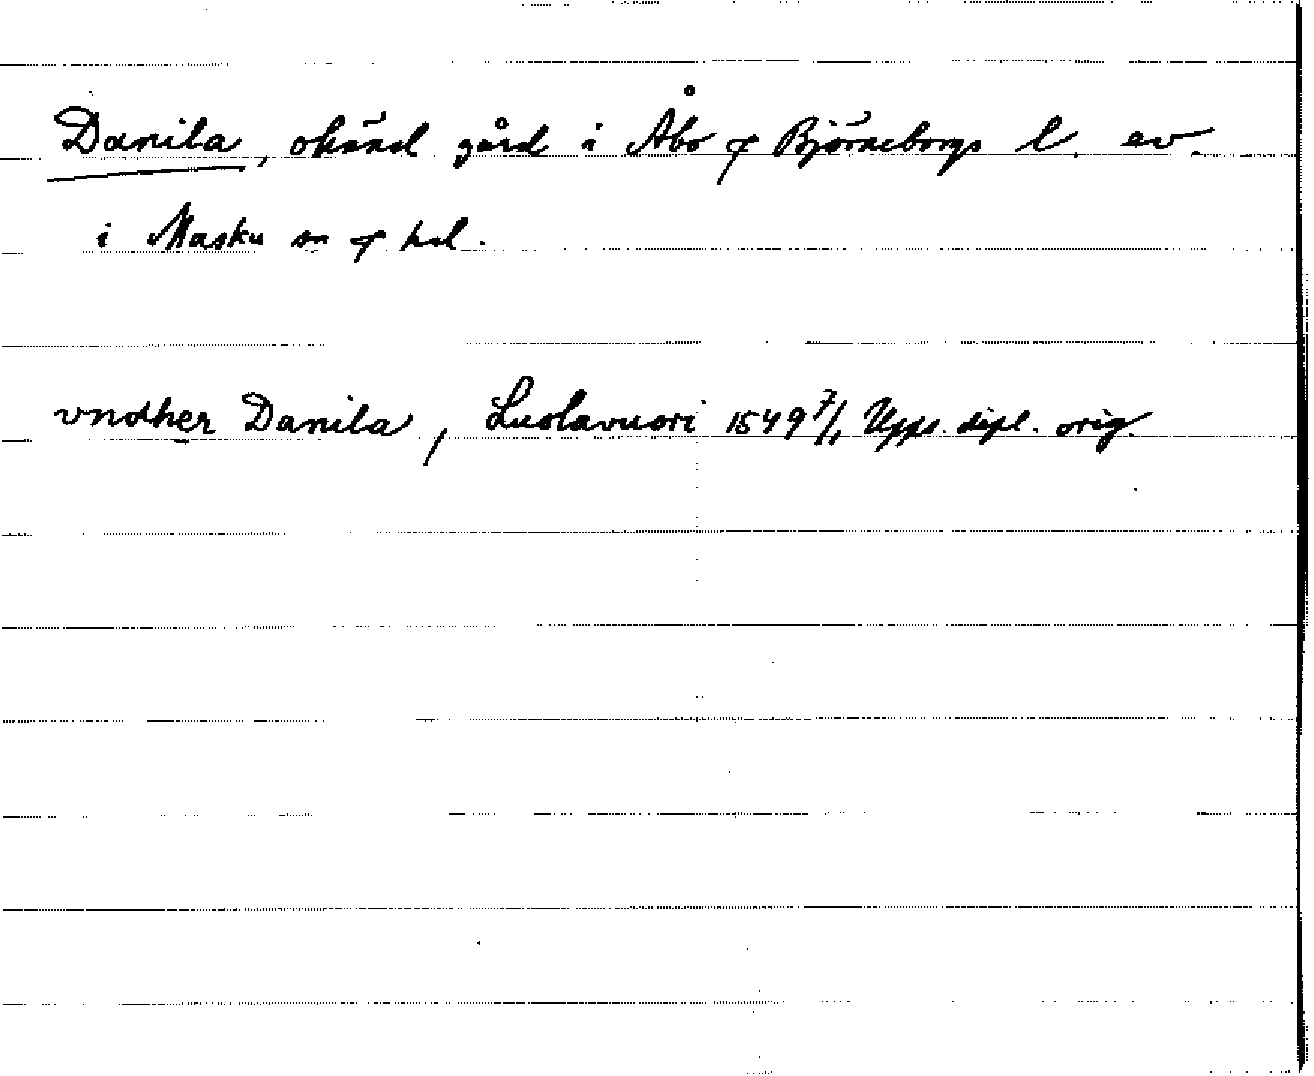 Danila, okänd gård i Åbo o Björneborgs l. ev.
i Masku sn o hd.
vndher Danila, Luolavuori 1549 7/1 Upps. dipl. orig.